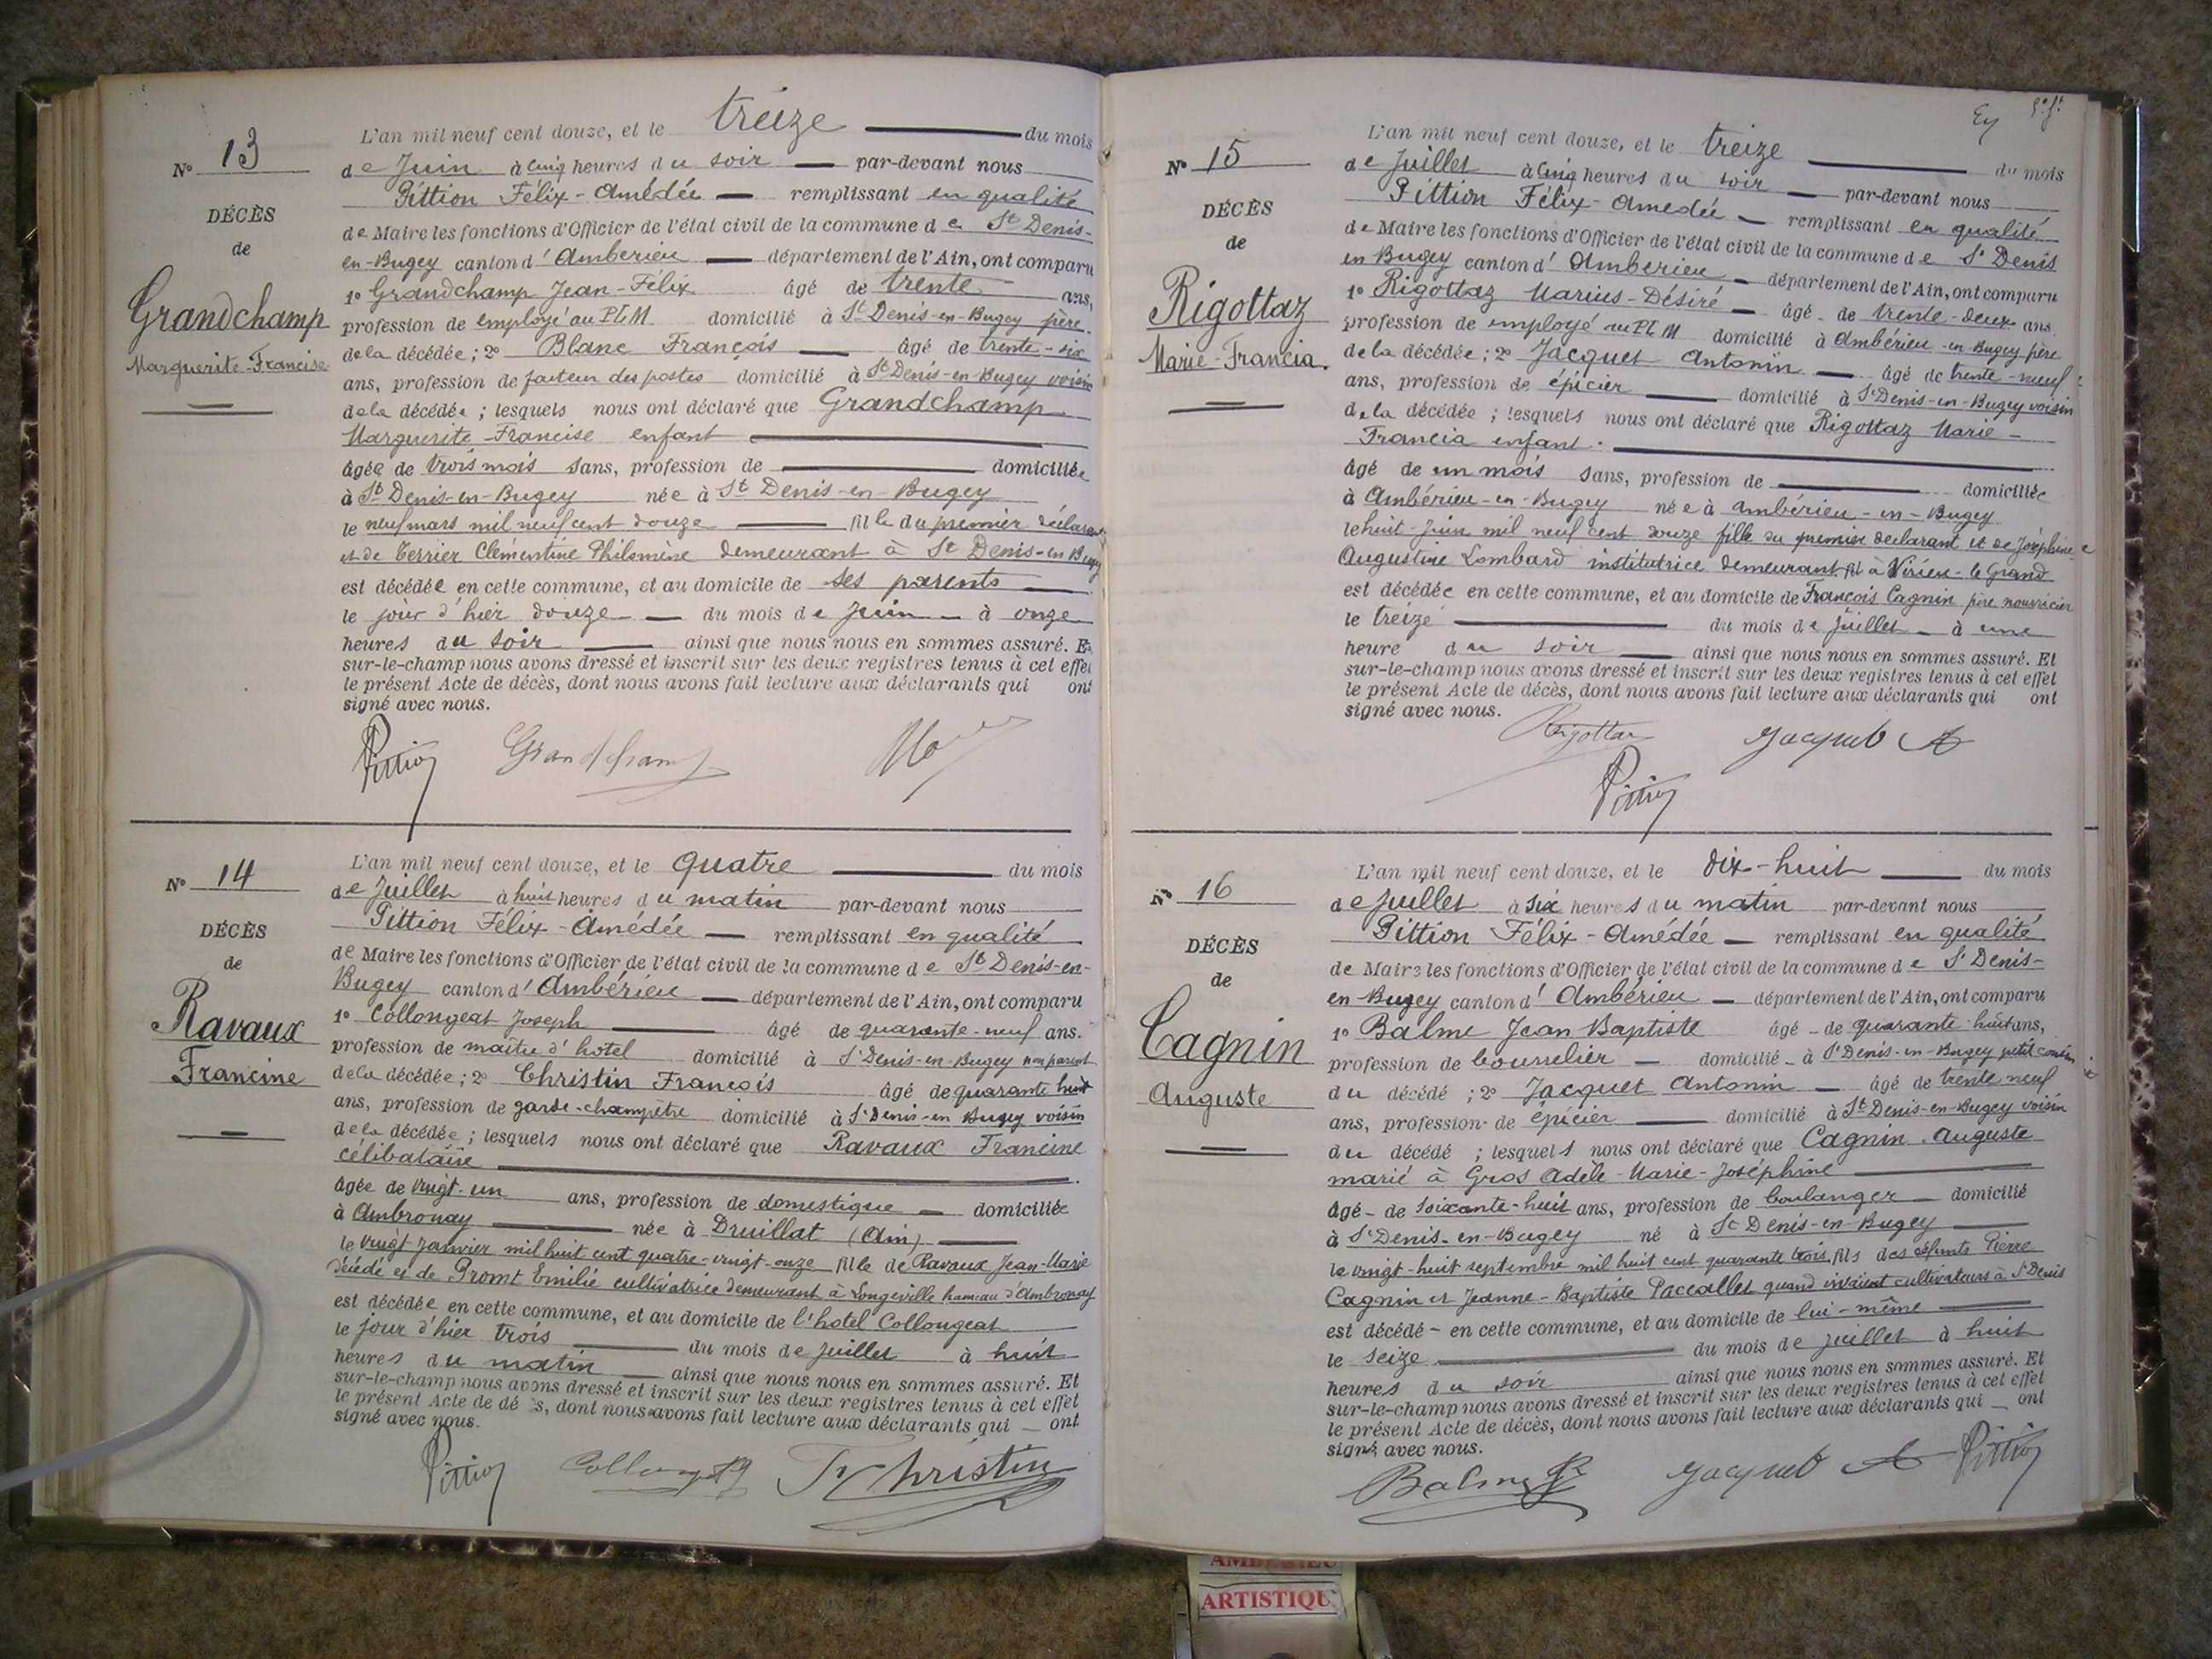 L'an mil neuf cent douze, et le treize du mois
N° 13
de Juin à cinq heures du soir par-devant nous
Pittion Félix-Amédée remplissant en qualité
DÉCÈS
de Maire les fonctions d'Officier de l'état civil de la commune de St Denis-
de
en-Bugey canton d'Amberieu département de l'Ain, ont comparu
Grandchamp
1° Grandchamp Jean-Félix âgé de trente ans,
profession de employé au PLM domicilié à St Denis-en-Bugey père
Marguerite-Francise
de la décédée; 2° Blanc François âgé de trente-six
ans, profession de facteur des postes domicilié à St Denis-en-Bugey voisin
de la décédée; lesquels nous ont déclaré que Grandchamp
Marguerite-Francise enfant
âgée de trois mois sans, profession de domiciliée
à St Denis-en-Bugey née à St Denis-en-Bugey
le neuf mars mil neuf cent douze fille du premier déclarant
et de Terrier Clémentine Philomène demeurant à St Denis-en Bugey
est décédée en cette commune, et au domicile de ses parents
le jour d'hier douze du mois de juin à onze
heures du soir ainsi que nous nous en sommes assuré. Et
sur-le-champ nous avons dressé et inscrit sur les deux registres tenus à cet effet
le présent Acte de décès, dont nous avons fait lecture aux déclarants qui ont
signé avec nous.
Pittion Grandchamp
L'an mil neuf cent douze, et le quatre du mois
N° 14
de Juillet à huit heures du matin par-devant nous
Pittion Félix-Amédée remplissant en qualité
DÉCÈS
de Maire les fonctions d'Officier de l'état civil de la commune de St Denis-en-
de
Bugey canton d'Ambérieu département de l'Ain, ont comparu
Ravaux
1° Collongeat Joseph âgé de quarante-neuf ans.
profession de maître d'hotel domicilié à St Denis-en-Bugey non parent
Francine
de la décédée; 2° Christin François âgé de quarante huit
ans, profession de garde-champêtre domicilié à St Denis-en Bugey voisin
de la décédée; lesquels nous ont déclaré que Ravaux Francine
célibataire
âgée de vingt-un ans, profession de domestique domiciliée
à Ambronay née à Druillat (Ain)
le vingt janvier mil huit cent quatre-vingt-onze fille de Ravaux Jean-Marie
décédé et de Promt Emilie cultivatrice demeurant à Longeville hameau d'Ambronay
est décédée en cette commune, et au domicile de l'hotel Collongeat
le jour d'hier trois du mois de juillet à huit
heures du matin ainsi que nous nous en sommes assuré. Et
sur-le-champ nous avons dressé et inscrit sur les deux registres tenus à cet effet
le présent Acte de dé s, dont nous avons fait lecture aux déclarants qui ont
signé avec nous.
Pittion Collongeat Fr Christin
L'an mil neuf cent douze, et le treize du mois
N° 15
de Juillet à cinq heures du soir par-devant nous
Pittion Félix-Amédée remplissant en qualité
DÉCÈS
de Maire les fonctions d'Officier de l'état civil de la commune de St Denis
de
en Bugey canton d'Amberieu département de l'Ain, ont comparu
Rigottaz
1° Rigottaz Marius-Désiré âgé de trente-deux ans.
profession de employé au PLM domicilié à Ambérieu-en-Bugey père
Marie-Francia.
de la décédée; 2° Jacquet Antonin âgé de trente-neuf
ans, profession de épicier domicilié à St Denis-en-Bugey voisin
de la décédée; lesquels nous ont déclaré que Rigottaz Marie-
Francia enfant.
âgé de un mois sans, profession de domiciliée
à Ambérieu-en-Bugey née à Ambérieu-en-Bugey
le huit Juin mil neuf cent douze fille du premier déclarant et de Joséphine
Augustine Lombard institutrice demeurant à Virieu-le Grand
est décédée en cette commune, et au domicile de François Cagnin père nourricier
le treize du mois de juillet à une
heure du soir ainsi que nous nous en sommes assuré. Et
sur-le-champ nous avons dressé et inscrit sur les deux registres tenus à cet effet
le présent Acte de décès, dont nous avons fait lecture aux déclarants qui ont
signé avec nous.
Rigottaz Jacquet A
Pittion
L'an mil neuf cent douze, et le dix-huit du mois
N° 16
de Juillet à six heures du matin par-devant nous
Pittion Félix-Amédée remplissant en qualité
DÉCÈS
de Maire les fonctions d'Officier de l'état civil de la commune de St Denis-
de
en-Bugey canton d'Ambérieu département de l'Ain, ont comparu
Cagnin
1° Balme Jean Baptiste âgé de quarante-huit ans,
profession de bourrelier domicilié à St Denis-en-Bugey petit cousin
Auguste
du décédé; 2° Jacquet Antonin âgé de trente neuf
ans, profession de épicier domicilié à St Denis-en-Bugey voisin
du décédé; lesquels nous ont déclaré que Cagnin Auguste
marié à Gros Adèle-Marie-Joséphine
âgé de soixante-huit ans, profession de boulanger domicilié
à St Denis-en-Bugey né à St Denis-en-Bugey
le vingt-huit septembre mil huit cent quarante trois, fils des défunts Pierre
Cagnin et Jeanne-Baptiste Paccallet quand vivaient cultivateurs à St Denis
est décédé en cette commune, et au domicile de lui-même
le seize du mois de juillet à huit
heures du soir ainsi que nous nous en sommes assuré. Et
sur-le-champ nous avons dressé et inscrit sur les deux registres tenus à cet effet
le présent Acte de décès, dont nous avons fait lecture aux déclarants qui ont
signé avec nous.
Balme Jacquet A Pittion
AMBERIEU
ARTISTIQU